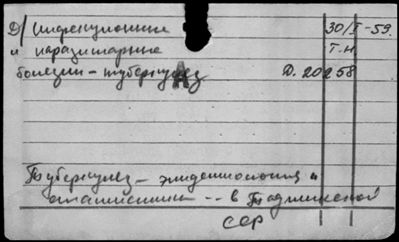 Д/ Инфекционные 30/I-59.
и паразитарные Т.Н.
болезни – туберкулез Д. 20258
А
Туберкулез – эпидемиология и
статистика -- в Таджикской
ССР